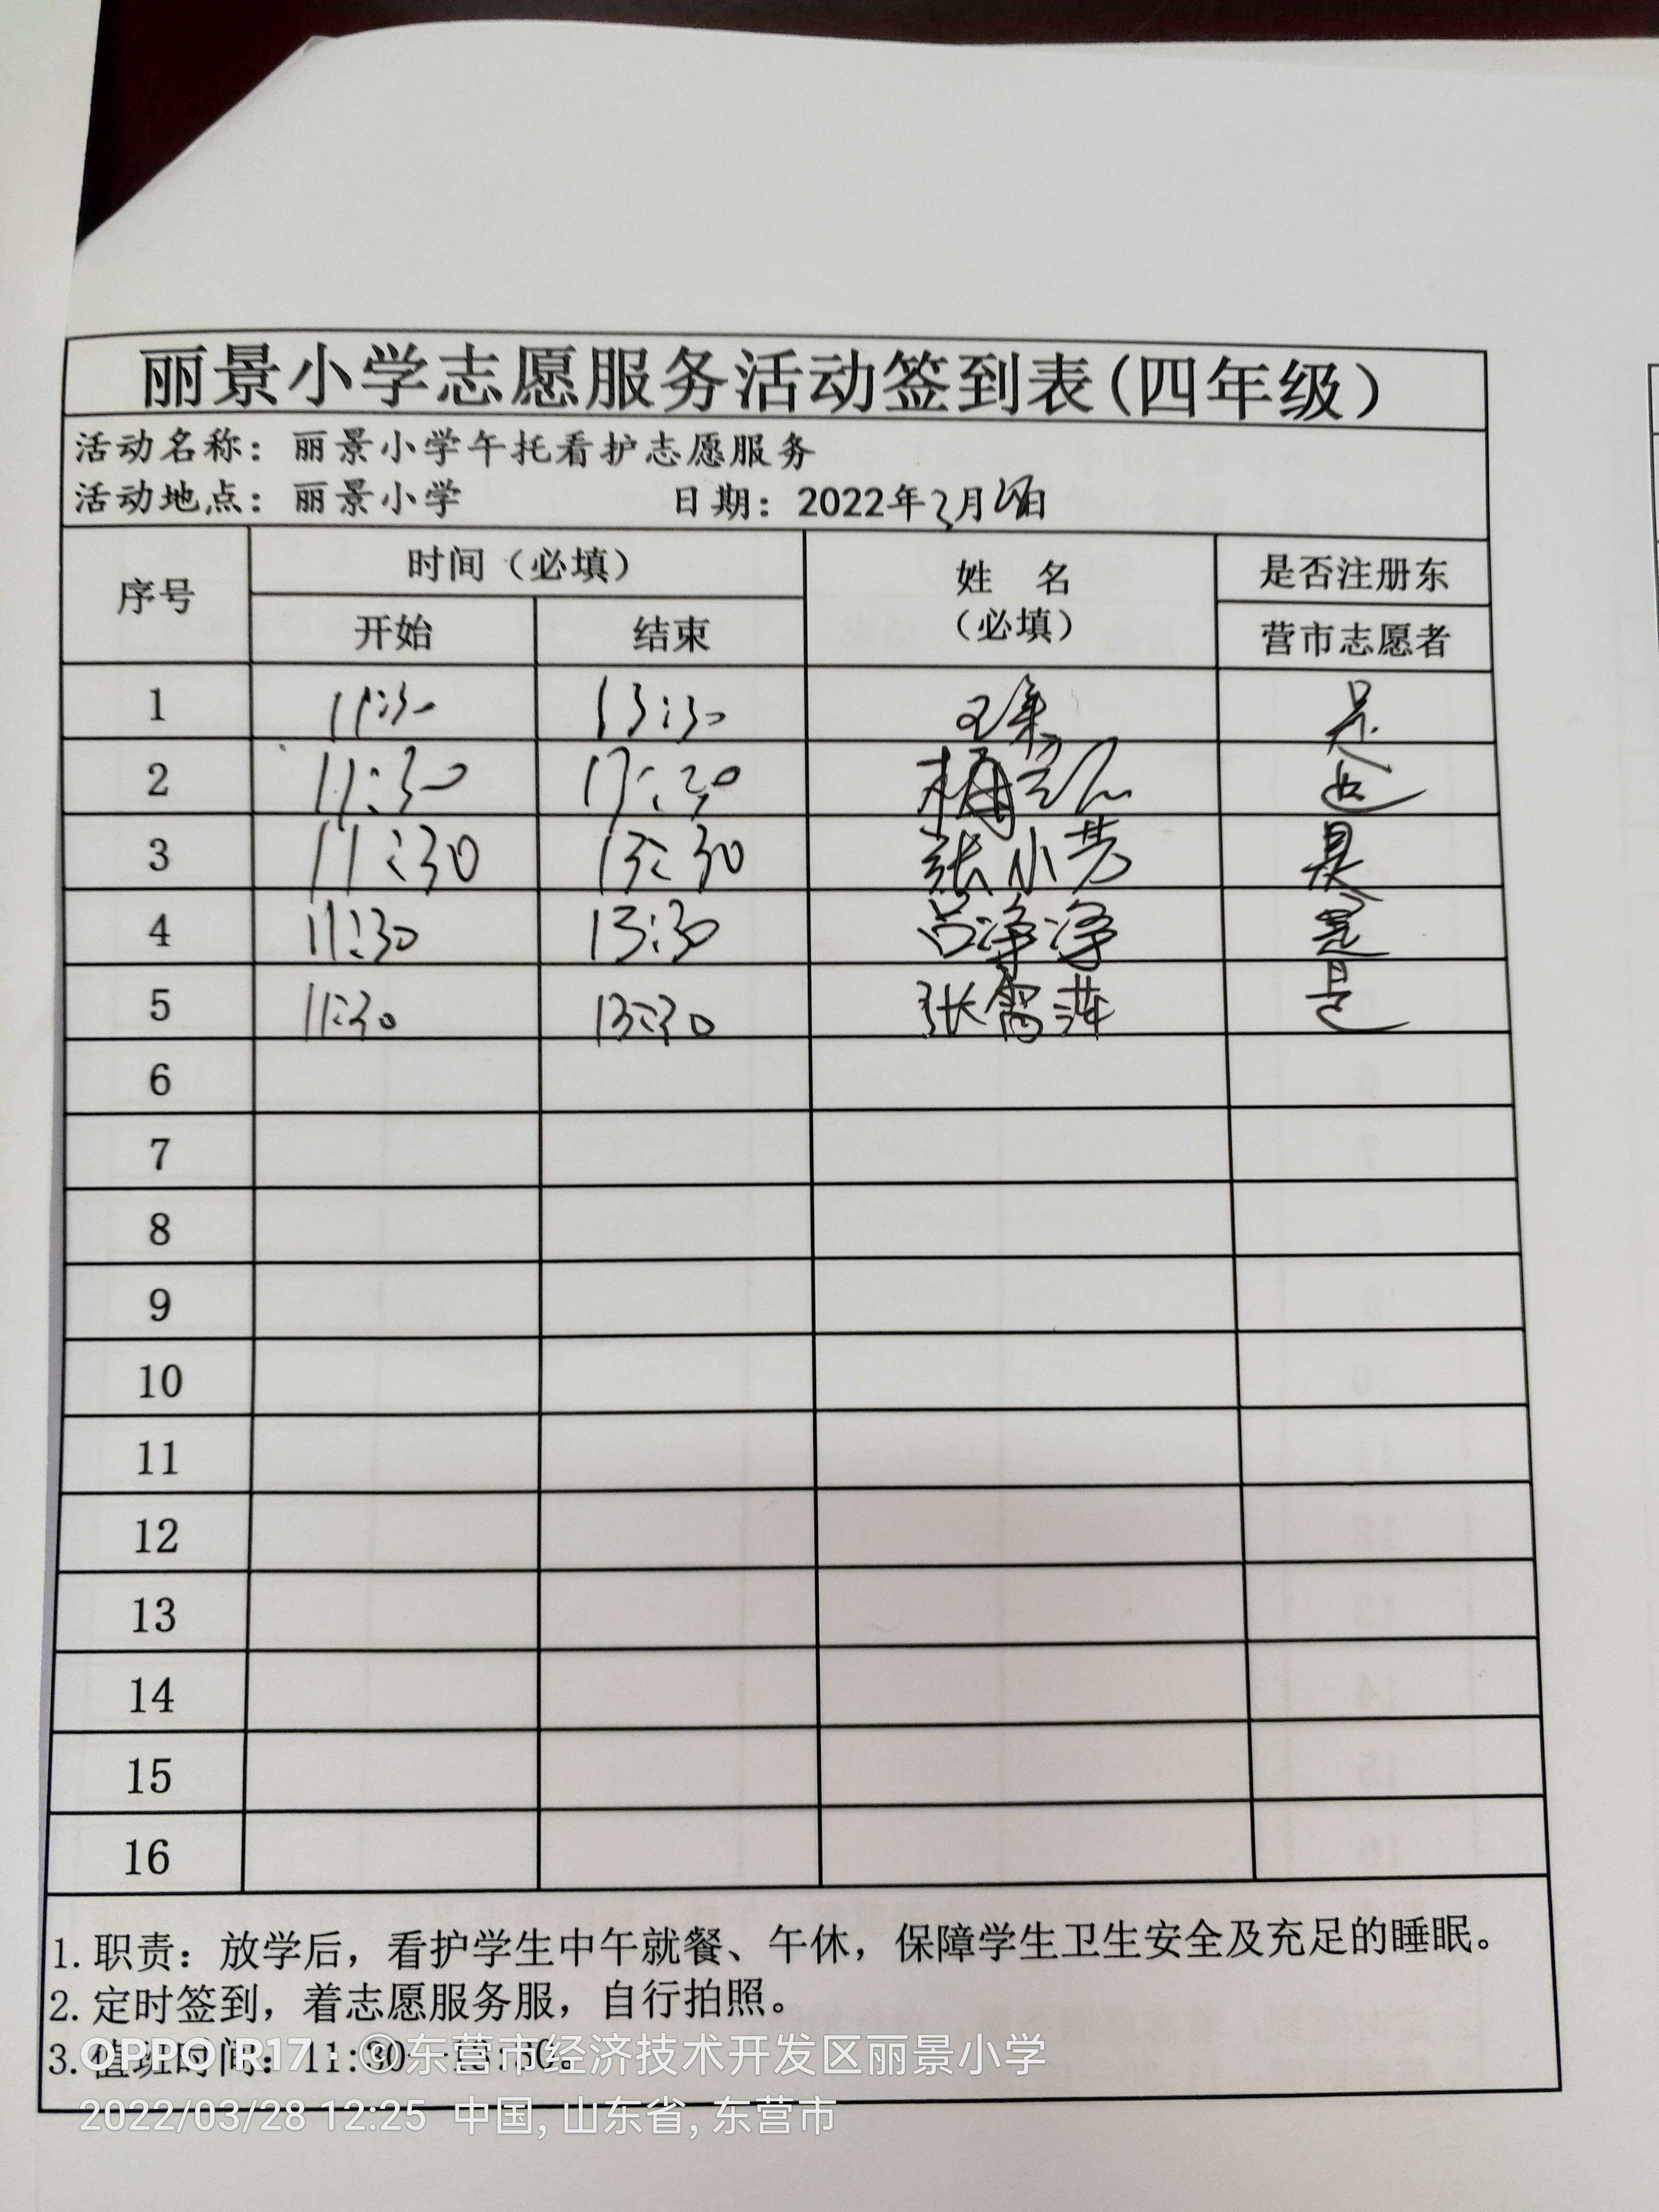 丽景小学志愿服务活动签到表(四年级)
活动名称：丽景小学午托看护志愿服务
活动地点：丽景小学 日期：2022年3月 日
序号 时间（必填） 姓 名 是否注册东
开始 结束 （必填） 营市志愿者
1 11:30 13:30 是
2 11:30 是
3 11:30 13:30 张小芳 是
4 11:30 13:30 吕净净 是
5 11:30 13:30 张 萍 是
6
7
8
9
10
11
12
13
14
15
16
1.职责：放学后，看护学生中午就餐、午休，保障学生卫生安全及充足的睡眠。
2.定时签到，着志愿服务服，自行拍照。
3.值班时间：11:30--13:30。
OPPO R17 · ©东营市经济技术开发区丽景小学
2022/03/28 12:25 中国, 山东省, 东营市